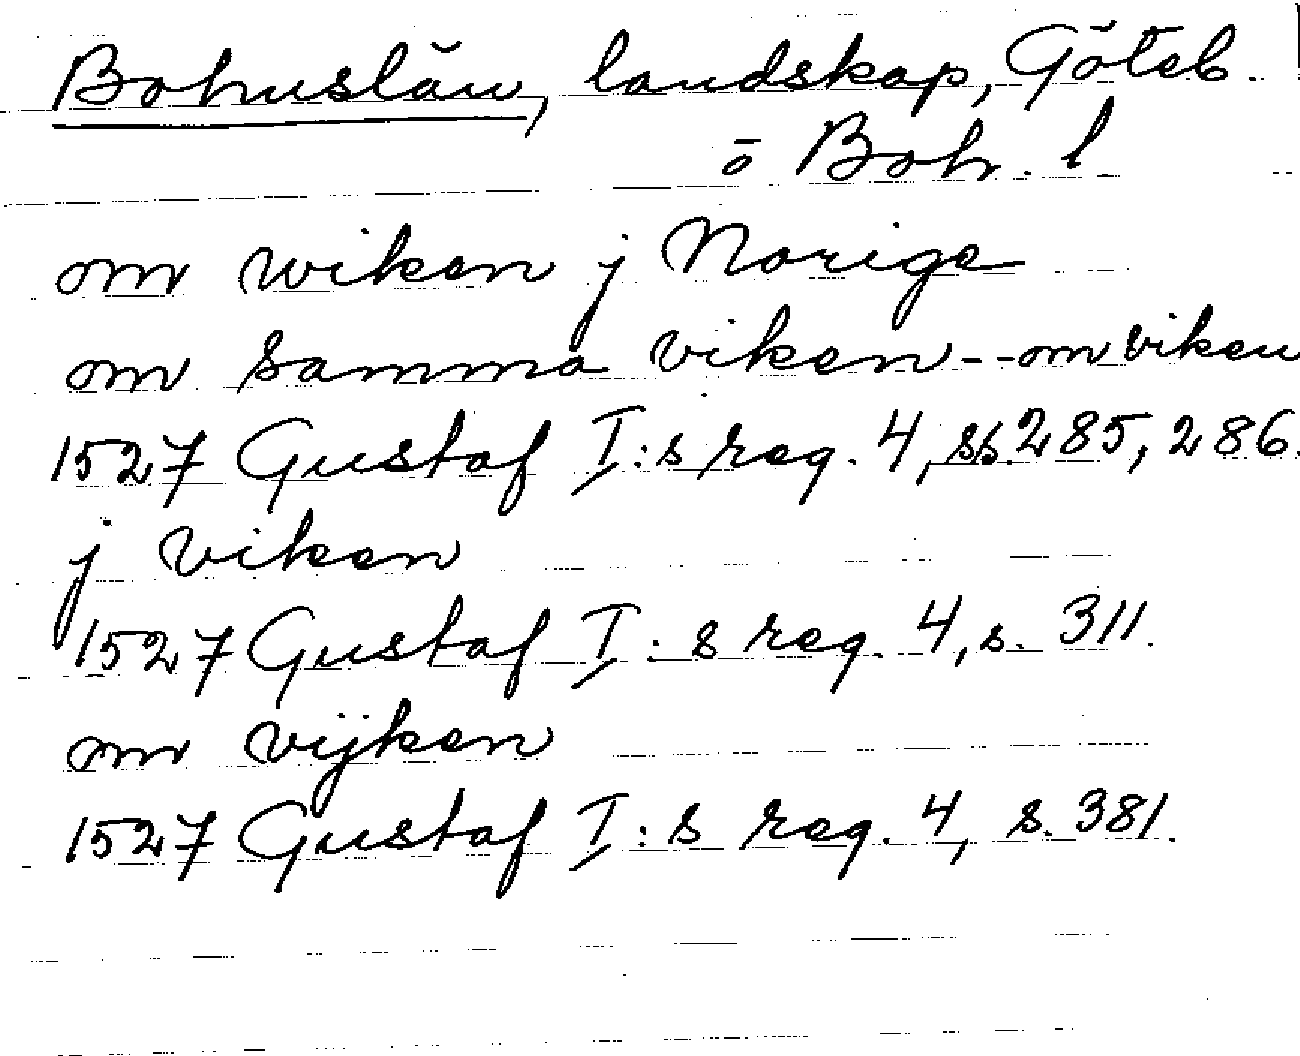 Bohuslän, landskap, Göteb.
o Boh. l
om wiken j Norige
om samma viken -- om viken
1527 Gustaf I:s reg. 4, ss. 285, 286.
j viken
1527 Gustaf I:s reg. 4, s. 311.
om vijken
1527 Gustaf I:s reg. 4, s. 381.